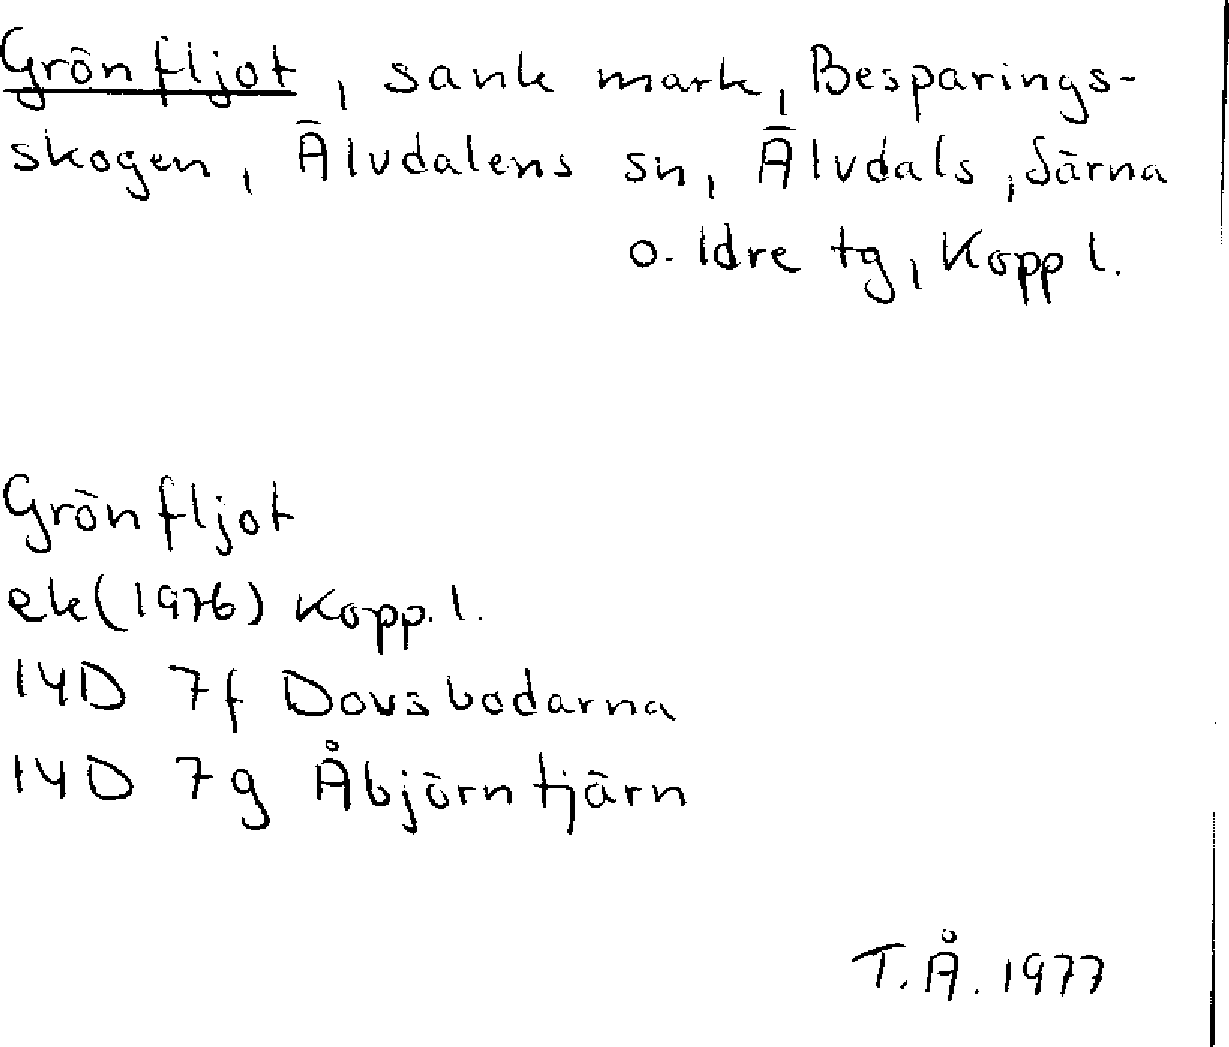 Grönfljot, sank mark, Besparings-
skogen, Älvdalens sn, Älvdals, Särna
o. Idre tg, Kopp l.
Grönfljot
ek(1976) Kopp. l.
14D 7f Dovsbodarna
14D 7g Åbjörntjärn
T.Å. 1977